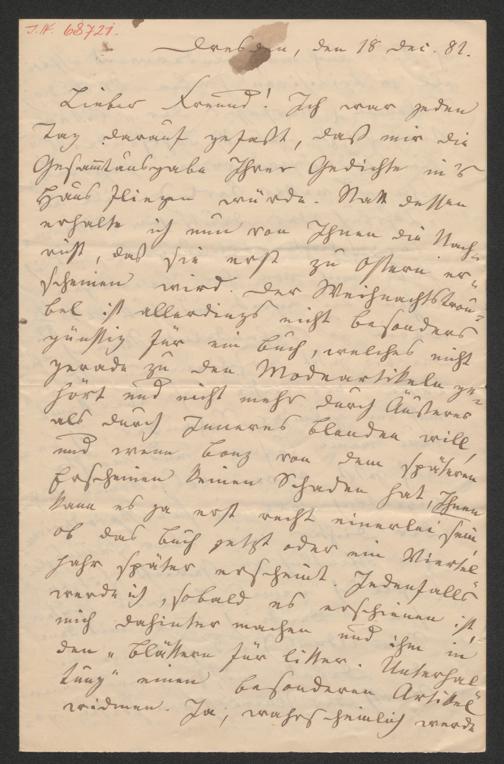 J.N. 68721.
Dresden, den 18 Dec. 82.
Lieber Freund! Ich war jeden
Tag darauf gefaßt, daß mir die
Gesammtausgabe Ihrer Gedichte in's
Haus fliegen würde. Statt dessen
erhalte ich nun von Ihnen die Nach-
richt, daß sie erst zu Ostern er-
scheinen wird. Der Weihnachtstrou-
bel ist allerdings nicht besonders
günstig für ein Buch, welches nicht
gerade zu den Modeartikeln ge-
hört und nicht mehr durch Äußeres
als durch Inneres blenden will,
und wenn Bonz von dem späteren
Erscheinen keinen Schaden hat, Ihnen
kann es ja erst recht einerlei sein,
ob das Buch jetzt oder ein Viertel
Jahr später erscheint. Jedenfalls
werde ich, sobald es erschienen ist,
mich dahinter machen und ihm in
den „Blättern für litter. Unterhal
tung" einen besonderen Artikel
widmen. Ja, wahrscheinlich werde